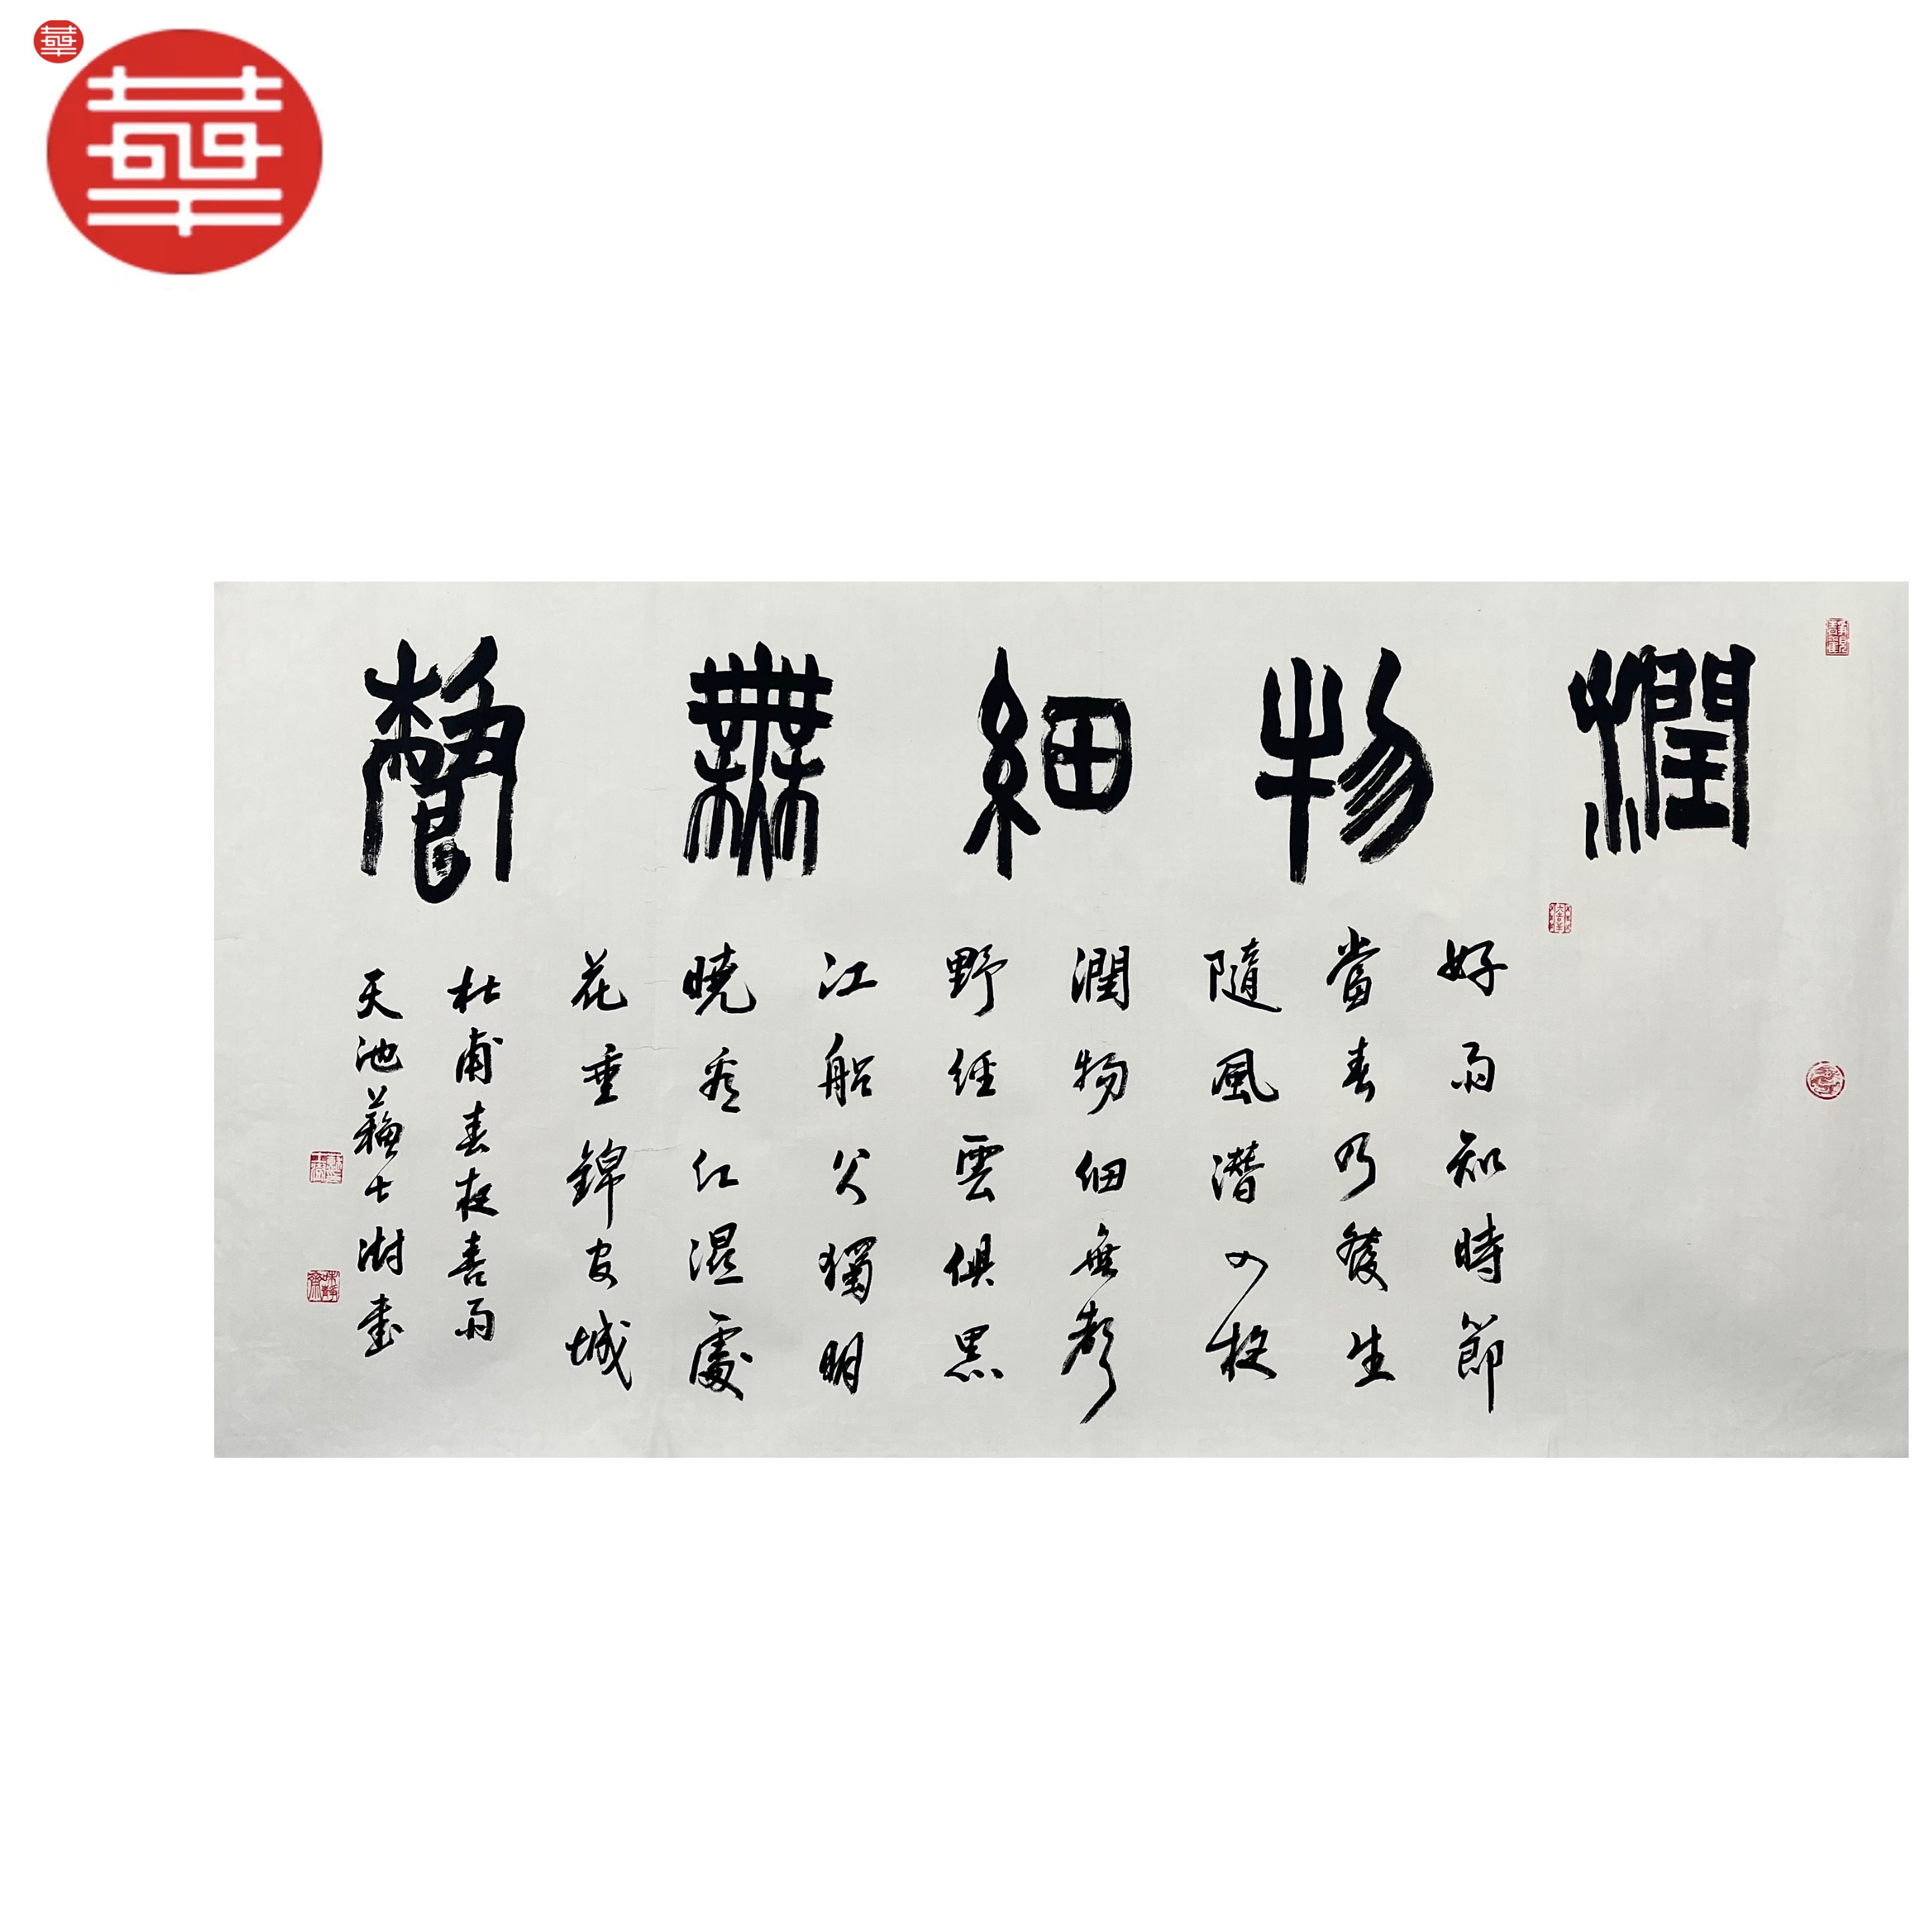 華
華
潤物細無聲
好雨知時節
當春乃發生
隨風潛入夜
潤物細無聲
野徑雲俱黑
江船火獨明
曉看紅濕處
花重錦官城
杜甫春夜喜雨
天池蘇士澍書